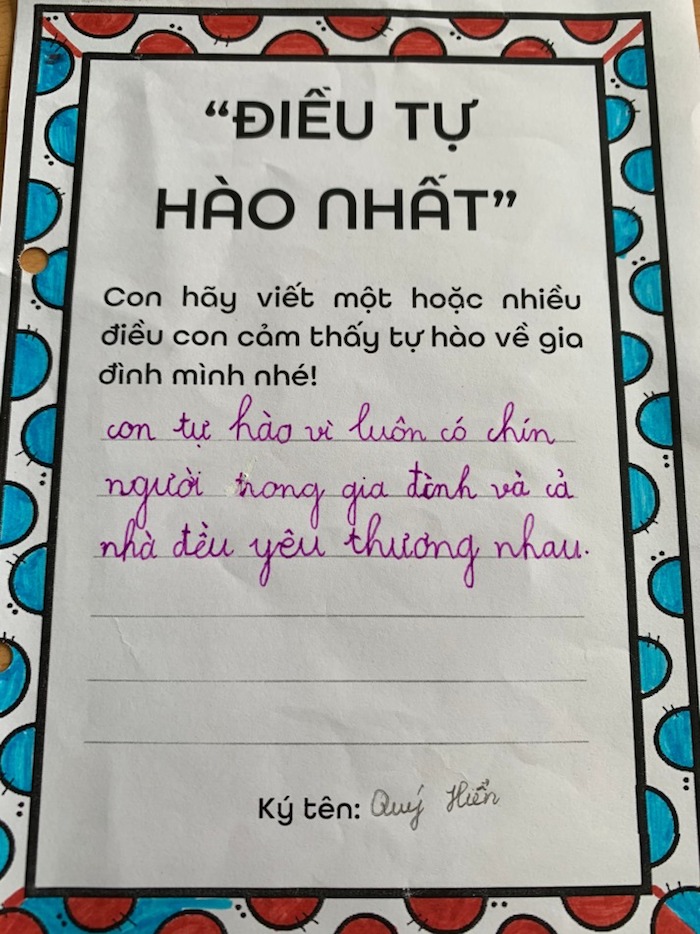 “ĐIỀU TỰ
HÀO NHẤT”
Con hãy viết một hoặc nhiều
điều con cảm thấy tự hào về gia
đình mình nhé!
con tự hào vì luôn có chín
người trong gia đình và cả
nhà đều yêu thương nhau.
Ký tên: Quý Hiển